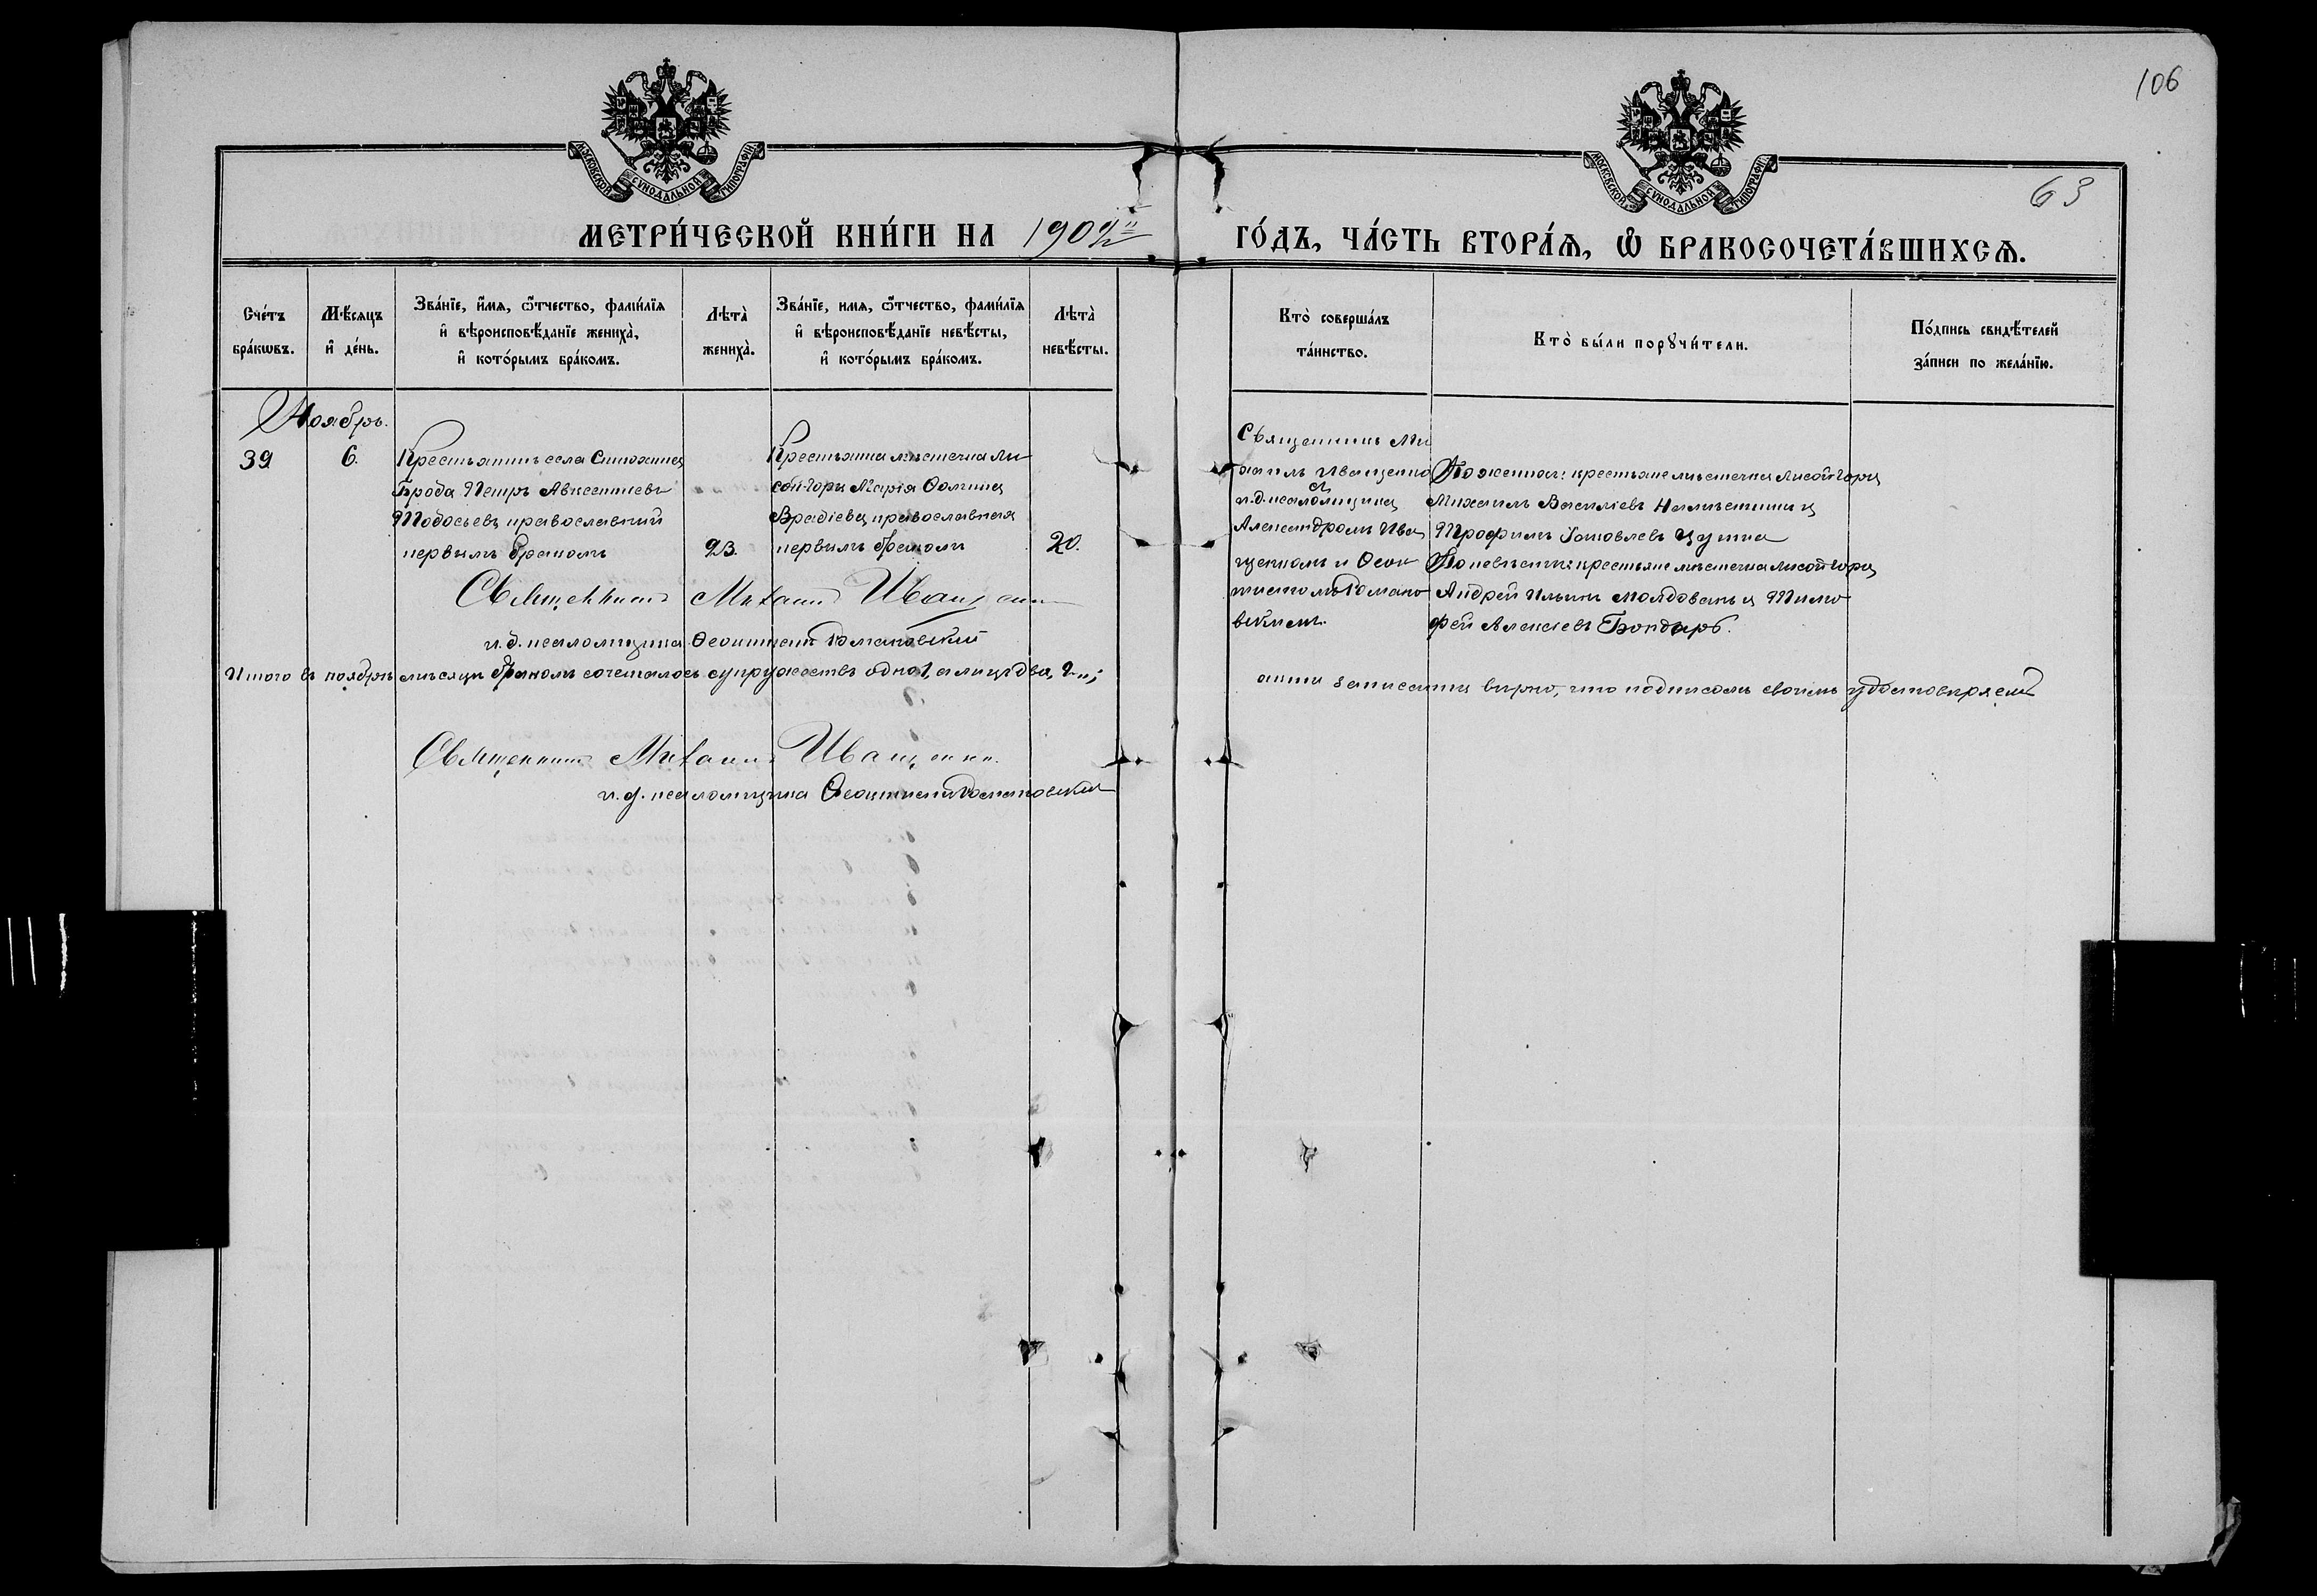 106
63
МОСКОВСКОЙ СѴНОДАЛЬНОЙ ТИПОГРАФІИ
МОСКОВСКОЙ СѴНОДАЛЬНОЙ ТИПОГРАФІИ
МЕТРИ́ЧЕСКОЙ КНИ́ГИ НА
ГО́ДЪ, ЧА́СТЬ ВТОРА́Ѧ, Ѽ БРАКОСОЧЕТА́ВШИХСѦ.
Сче́тъ бра́кѡвъ.
Мѣ́сяцъ и҆ де́нь.
Зва́нїе, и҆́мя, ѻ҆́тчество, фами́лїя и҆ вѣроисповѣ́данїе жениха̀, и҆ кото́рымъ бра́комъ.
Лѣта̀ жениха̀.
Зва́нїе, имя, ѻ҆́тчество, фами́лїя и҆ вѣроисповѣ́данїе невѣ́сты, и҆ кото́рымъ бра́комъ.
Лѣта̀ невѣ́сты.
Кто̀ соверша́лъ та́инство.
Кто̀ бы́ли порꙋчи́тели.
По́дпись свидѣ́телей за́писи по жела́нїю.
Ноябрь.
39
6.
Крестьянинъ села Синюхина
Брода Петръ Авксентіевъ
Тодосьевъ православный
первымъ бракомъ
23.
Крестьянка мѣстечка Лы
сой-Горы Марія Ѳомина
Врадіева православная
первымъ бракомъ
20.
Священникъ Ми
хаилъ Иващенко
и. д. псаломщика
Александромъ Ива
щенкомъ и Ѳеок
тистомъ Романо
вскимъ.
По женихѣ: крестьяне мѣстечка Лысой Горы
Михаилъ Василіевъ и
Трофимъ Іаковлевъ
По невѣстѣ: крестьяне мѣстечка Лысой Горы
Андрей Ильинъ Молдованъ и Тимо
фей Алексіевъ Бондарь.
Священникъ Михаилъ Иващенко
и. д. псаломщика Ѳеоктистъ Романовскій
Итого въ ноябрѣ мѣсяцѣ бракомъ сочеталось супружествъ одно 1, а лицъ два, 2;
записаны вѣрно, что подписомъ своимъ удостовѣряемъ
Священникъ Михаилъ Иващенко.
и. д. псаломщика Ѳеоктистъ Романовскій